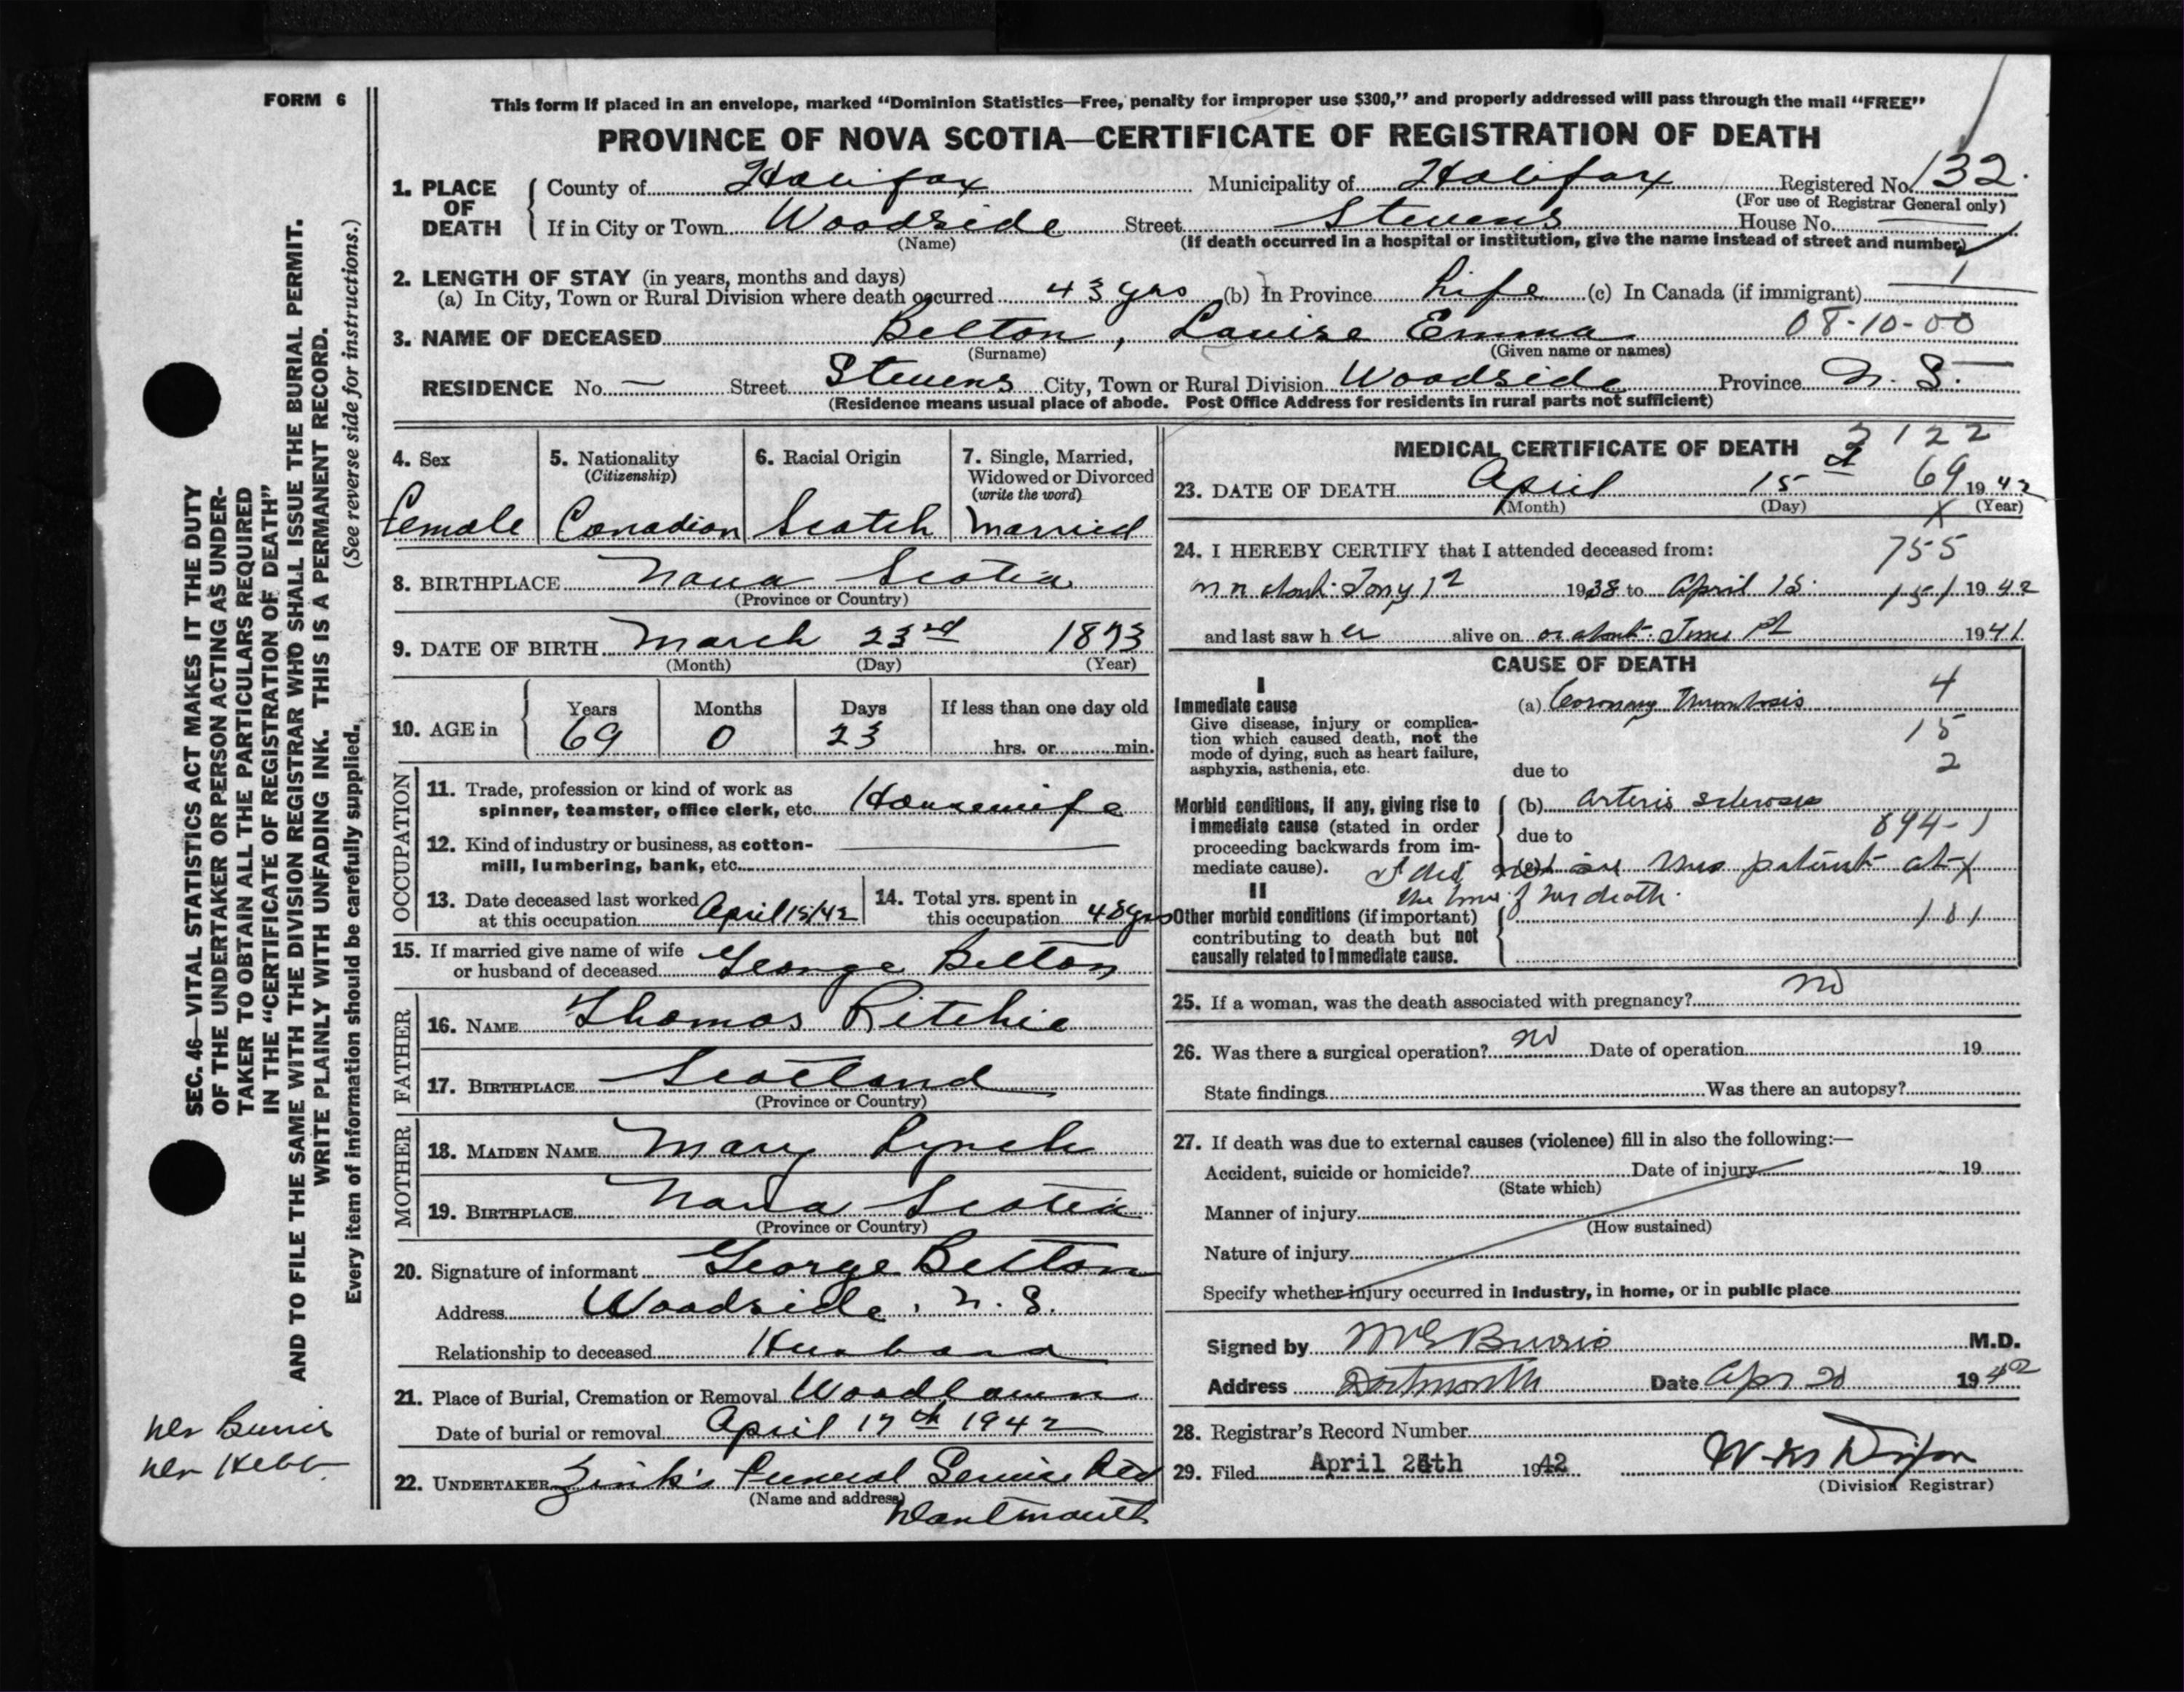 FORM 6
This form if placed in an envelope, marked “Dominion Statistics—Free, penalty for improper use $300,” and properly addressed will pass through the mail “FREE”
PROVINCE OF NOVA SCOTIA—CERTIFICATE OF REGISTRATION OF DEATH
1. PLACE OF DEATH { County of Halifax Municipality of Halifax Registered No. 132.
(For use of Registrar General only)
If in City or Town Woodside Street Stevens House No.
(Name) (If death occurred in a hospital or institution, give the name instead of street and number)
2. LENGTH OF STAY (in years, months and days)
(a) In City, Town or Rural Division where death occurred 43 yrs (b) In Province Life (c) In Canada (if immigrant)
3. NAME OF DECEASED Belton, Louise Emma 08-10-00
(Surname) (Given name or names)
RESIDENCE No. — Street Stevens City, Town or Rural Division Woodside Province N. S.
(Residence means usual place of abode. Post Office Address for residents in rural parts not sufficient)
4. Sex
Female
5. Nationality
(Citizenship)
Canadian
6. Racial Origin
Scotch
7. Single, Married, Widowed or Divorced
(write the word)
Married
8. BIRTHPLACE Nova Scotia
(Province or Country)
9. DATE OF BIRTH March 23rd 1873
(Month) (Day) (Year)
10. AGE in { Years Months Days If less than one day old
69 0 23 hrs. or min.
OCCUPATION
11. Trade, profession or kind of work as
spinner, teamster, office clerk, etc. Housewife
12. Kind of industry or business, as cotton-
mill, lumbering, bank, etc.
13. Date deceased last worked
at this occupation April 15/42
14. Total yrs. spent in
this occupation 48 yrs
15. If married give name of wife
or husband of deceased George Belton
FATHER
16. NAME Thomas Ritchie
17. BIRTHPLACE Scotland
(Province or Country)
MOTHER
18. MAIDEN NAME Mary Lynch
19. BIRTHPLACE Nova Scotia
(Province or Country)
20. Signature of informant George Belton
Address Woodside, N. S.
Relationship to deceased Husband
21. Place of Burial, Cremation or Removal Woodlawn
Date of burial or removal April 17th 1942
22. UNDERTAKER Zink's Funeral Service Ltd
(Name and address)
Dartmouth
MEDICAL CERTIFICATE OF DEATH
3122
23. DATE OF DEATH April 15 69 1942
(Month) (Day) (Year)
24. I HEREBY CERTIFY that I attended deceased from:
755
1938 to April 15 151 1942
and last saw her alive on or about June 1st 1941
CAUSE OF DEATH
I
Immediate cause
Give disease, injury or complica-
tion which caused death, not the
mode of dying, such as heart failure,
asphyxia, asthenia, etc.
(a) Coronary Thrombosis
4
15
2
due to
Morbid conditions, if any, giving rise to
immediate cause (stated in order
proceeding backwards from im-
mediate cause).
(b) Arterio sclerosis
due to
I did not see this patient at
the time of her death.
II
Other morbid conditions (if important)
contributing to death but not
causally related to immediate cause.
25. If a woman, was the death associated with pregnancy? no
26. Was there a surgical operation? no Date of operation 19
State findings Was there an autopsy?
27. If death was due to external causes (violence) fill in also the following:—
Accident, suicide or homicide? Date of injury 19
(State which)
Manner of injury
(How sustained)
Nature of injury
Specify whether injury occurred in industry, in home, or in public place
Signed by M G Burris M.D.
Address Dartmouth Date Apr 20 1942
28. Registrar's Record Number
29. Filed April th 1942
(Division Registrar)
SEC. 46—VITAL STATISTICS ACT MAKES IT THE DUTY
OF THE UNDERTAKER OR PERSON ACTING AS UNDER-
TAKER TO OBTAIN ALL THE PARTICULARS REQUIRED
IN THE “CERTIFICATE OF REGISTRATION OF DEATH”
AND TO FILE THE SAME WITH THE DIVISION REGISTRAR WHO SHALL ISSUE THE BURIAL PERMIT.
WRITE PLAINLY WITH UNFADING INK. THIS IS A PERMANENT RECORD.
Every item of information should be carefully supplied. (See reverse side for instructions.)
Burris